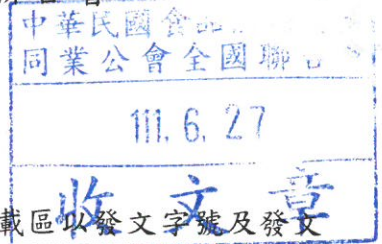 中華民國食品
同業公會全國聯合
111. 6. 27
收文章
載區以發文字號及發文